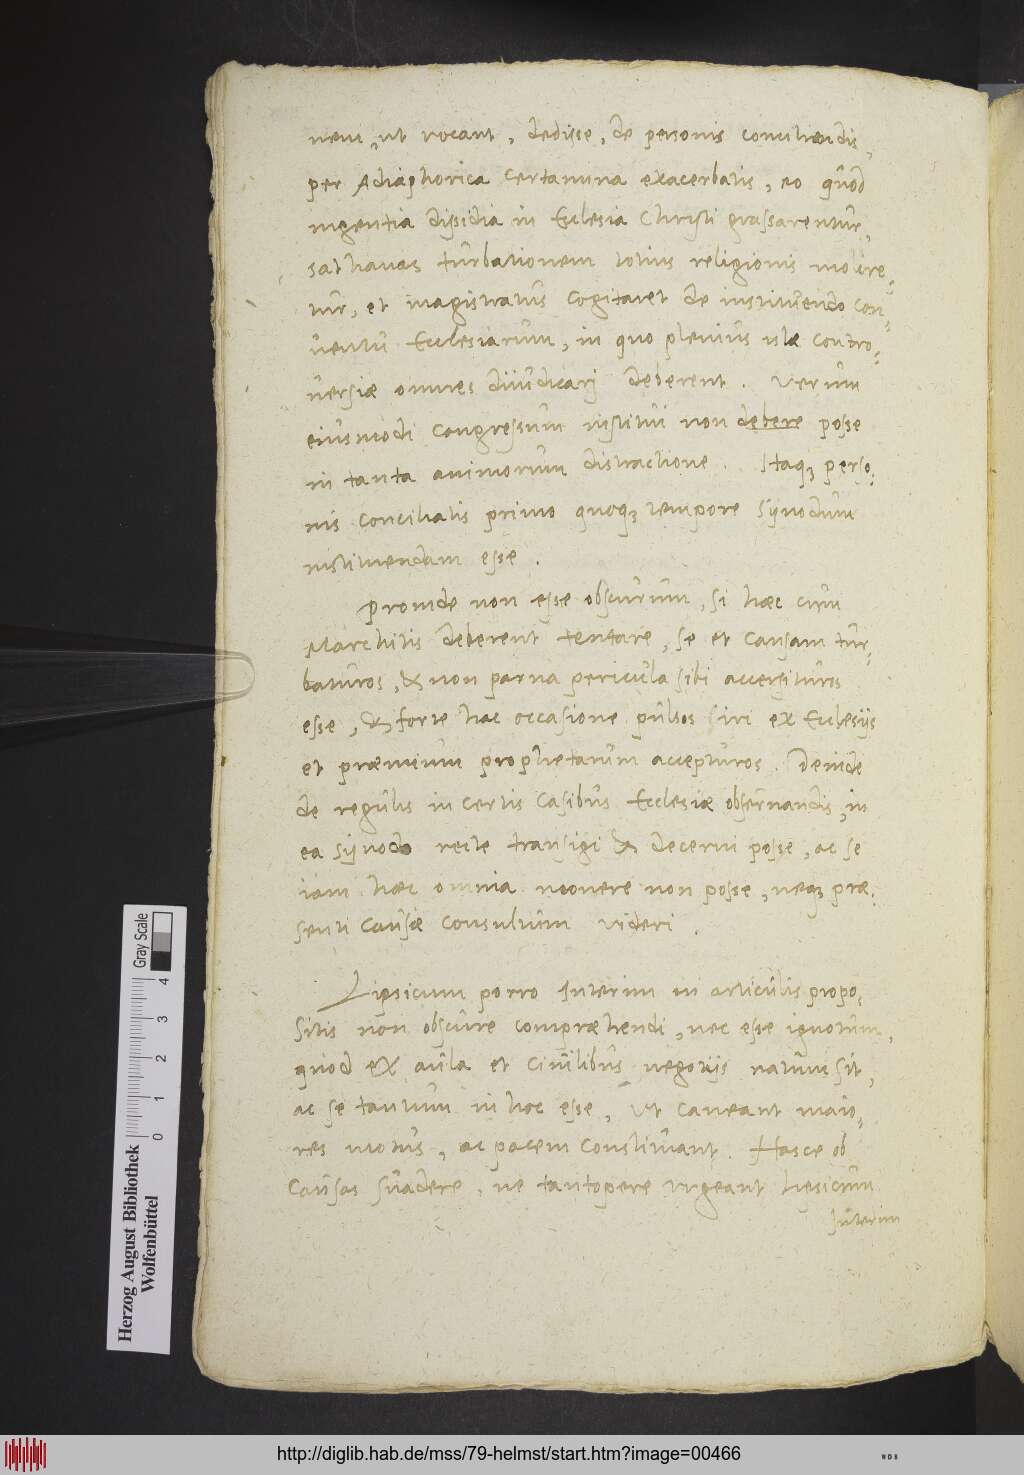 nem, ut vocant, dedisse, de personis conciliandis,
per Adiaphorica certamina exacerbatis, eo quòd
ingentia dissidia in Ecclesia Christi grassarentur,
sathanas turbationem totius religionis molire-
tur, et magistratus cogitaret de instituendo con-
uentu Ecclesiarum, in quo plenius istae contro-
uersiae omnes diiudicarj deberent. Verum
eiusmodi congressum institui non debere posse
in tanta animorum distractione. Itaq; perso-
nis conciliatis primo quoq; tempore synodum
instituendam esse.
Proinde non esse obscurum, si haec cum
Marchitis deberent tentare, se et causam tur-
baturos, & non parua pericula sibi accersituros
esse, & forte hac occasione pulsos siri ex Ecclesijs
et praemium prophetarum accepturos. Deinde
de regulis in certis casibus Ecclesiae obseruandis, in
ea synodo recte transigi & decerni posse, ac se
iam haec omnia mouere non posse, neq; prae-
senti causae consultum videri.
Lipsicum porro Interim in articulis propo-
sitis non obscure compraehendi, nec esse ignotum,
quod ex aula et ciuilibus negotijs natum sit,
ac se tantum in hoc esse, Vt caueant maio-
res motus, ac pacem constituant. Hasce ob
causas suadere, ne tantopere vrgeant lipsicum
Interim
Herzog August Bibliothek
Wolfenbüttel
0 1 2 3 4
Gray Scale
http://diglib.hab.de/mss/79-helmst/start.htm?image=00466
WDB